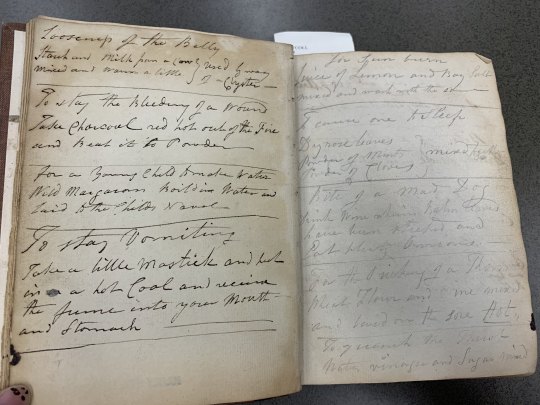 Looseness of the Belly
Starch and Milk from a Cow } used by way
mixed and warm a little } of a Clyster
To stay the Bleeding of a Wound
Take Charcoal red hot out of the Fire
and Beat it to Powder
for a Young Child to make Water
Wild Margarom Boild in Water and
Laid to the Childs Navel
To stay Vomiting
Take a little Mastick and put
in a hot Coal and receive
the fume into your Mouth
and Stomach
for Sun burn
Juice of Lemon and Bay Salt
mixed and wash with the same
To cause one to Sleep
Dogrose leaves
Powder of Mint } mixed
Powder of Cloves
Bite of a Mad Dog
Drink Wine wherein
have been Steeped and
Eat
for the Pricking of a Thorn
Wheat Flour and Wine mixed
and laid on the sore Hot
To quench the
Water vinegar and Sugar mixed